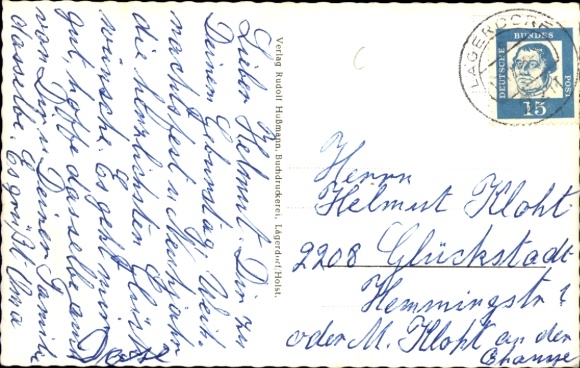 Lieber Helmut! Dir zu
Deinem Geburtstag Weih-
nachtsfest u. Neujahr
die herzlichsten Glück
wünsche. Es geht mir
gut, hoffe dasselbe auch
von Dir u. Deinen Famili
dasselbe. Es grüßt
Verlag Rudolf Hußmann, Buchdruckerei, Lägerdorf/Holst.
LÄGERDORF
DEUTSCHE BUNDES POST
15
Herrn
Helmut Kloht
2208 Glückstadt
Hemmingstr ?
oder M. Kloht an der
Chaussee